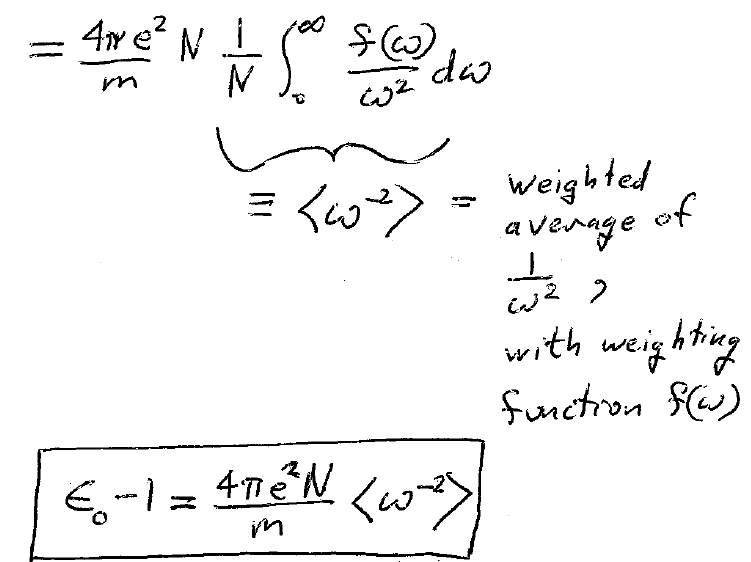 = 4πe²/m N 1/N ∫₀^∞ f(ω)/ω² dω
≡ <ω⁻²> = weighted
average of
1/ω² ,
with weighting
function f(ω)
ϵ₀-1 = 4πe²N/m <ω⁻²>